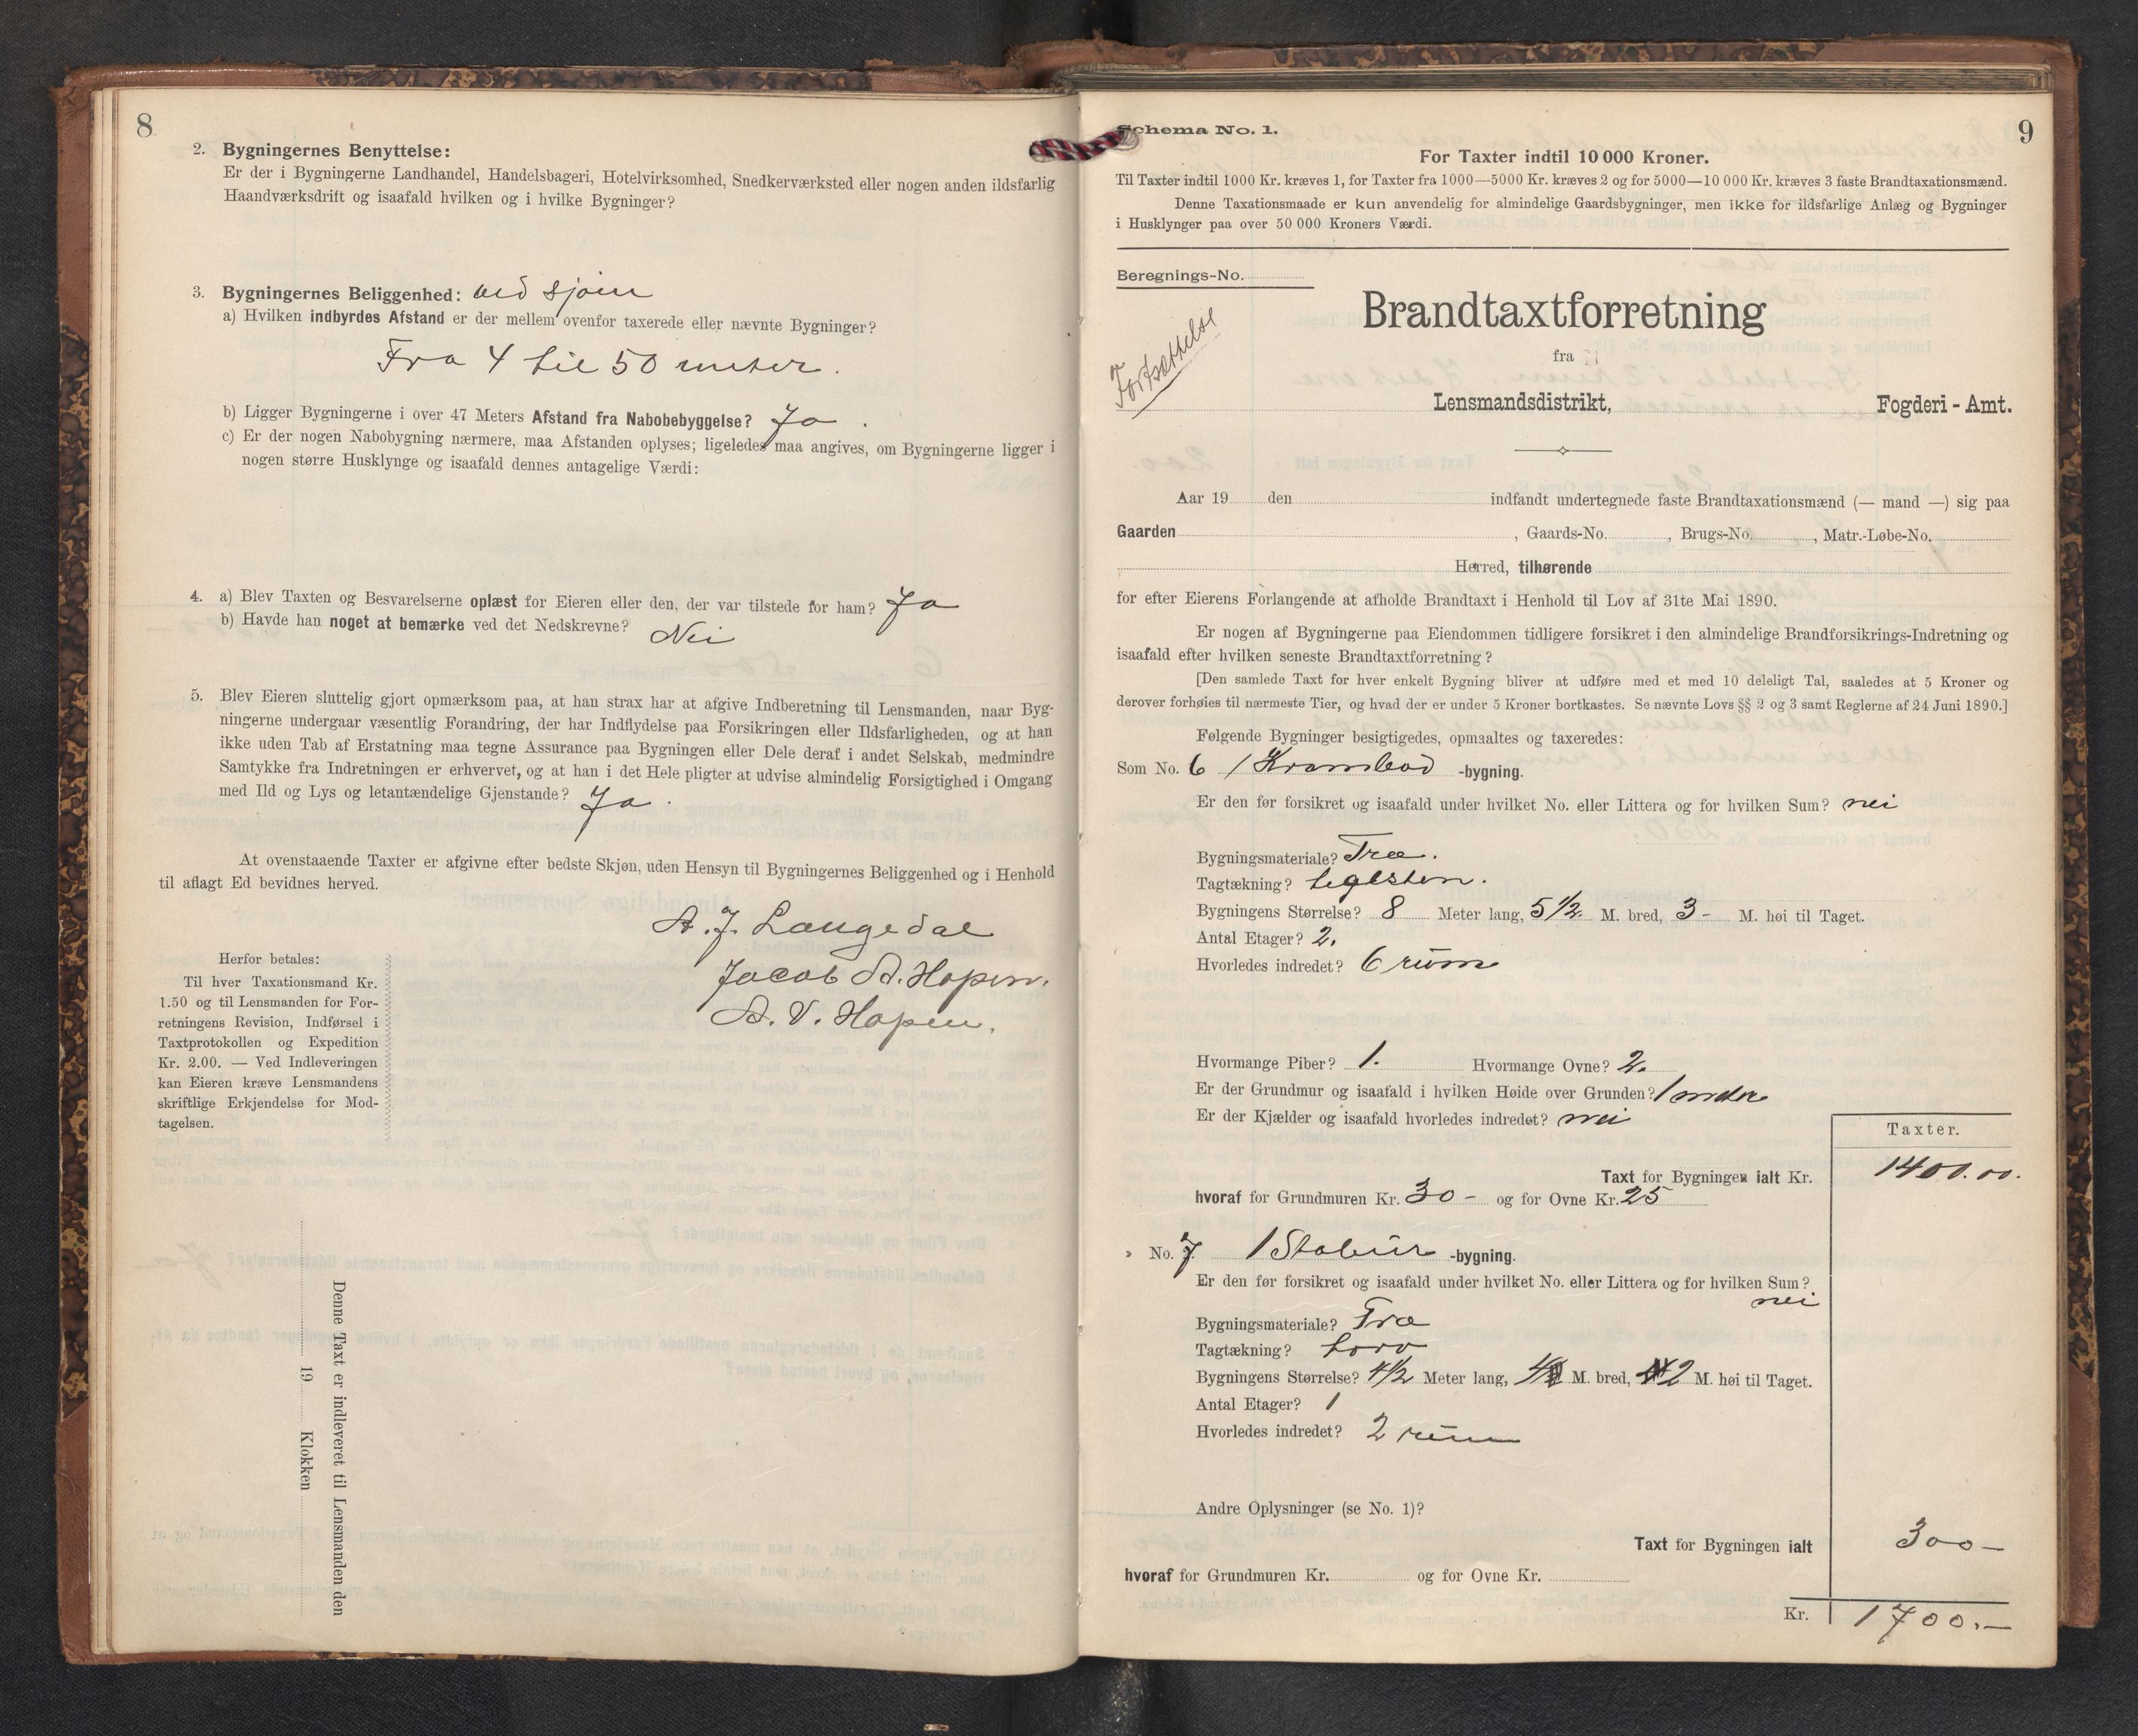 8
2. Bygningernes Benyttelse:
Er der i Bygningerne Landhandel, Handelsbageri, Hotelvirksomhed, Snedkerværksted eller nogen anden ildsfarlig
Haandværksdrift og isaafald hvilken og i hvilke Bygninger?
3. Bygningernes Beliggenhed: ved sjøen
a) Hvilken indbyrdes Afstand er der mellem ovenfor taxerede eller nævnte Bygninger?
Fra 4 til 50 meter.
b) Ligger Bygningerne i over 47 Meters Afstand fra Nabobebyggelse? Ja.
c) Er der nogen Nabobygning nærmere, maa Afstanden oplyses; ligeledes maa angives, om Bygningerne ligger i
nogen større Husklynge og isaafald dennes antagelige Værdi:
4. a) Blev Taxten og Besvarelserne oplæst for Eieren eller den, der var tilstede for ham? Ja
b) Havde han noget at bemærke ved det Nedskrevne? Nei
5. Blev Eieren sluttelig gjort opmærksom paa, at han strax har at afgive Indberetning til Lensmanden, naar Byg-
ningerne undergaar væsentlig Forandring, der har Indflydelse paa Forsikringen eller Ildsfarligheden, og at han
ikke uden Tab af Erstatning maa tegne Assurance paa Bygningen eller Dele deraf i andet Selskab, medmindre
Samtykke fra Indretningen er erhvervet, og at han i det Hele pligter at udvise almindelig Forsigtighed i Omgang
med Ild og Lys og letantændelige Gjenstande? Ja.
At ovenstaaende Taxter er afgivne efter bedste Skjøn, uden Hensyn til Bygningernes Beliggenhed og i Henhold
til aflagt Ed bevidnes herved.
A. J. Langedal
Jacob A. Hopen.
A. V. Hopen.
Herfor betales:
Til hver Taxationsmand Kr.
1.50 og til Lensmanden for For-
retningens Revision, Indførsel i
Taxtprotokollen og Expedition
Kr. 2.00. — Ved Indleveringen
kan Eieren kræve Lensmandens
skriftlige Erkjendelse for Mod-
tagelsen.
Denne Taxt er indleveret til Lensmanden den
19 Klokken
9
Schema No. 1.
For Taxter indtil 10 000 Kroner.
Til Taxter indtil 1000 Kr. kræves 1, for Taxter fra 1000—5000 Kr. kræves 2 og for 5000—10 000 Kr. kræves 3 faste Brandtaxationsmænd.
Denne Taxationsmaade er kun anvendelig for almindelige Gaardsbygninger, men ikke for ildsfarlige Anlæg og Bygninger
i Husklynger paa over 50 000 Kroners Værdi.
Beregnings-No.
Fortsættelse
Brandtaxtforretning
fra
Lensmandsdistrikt, Fogderi - Amt.
Aar 19 den indfandt undertegnede faste Brandtaxationsmænd (— mand —) sig paa
Gaarden , Gaards-No. , Brugs-No. , Matr.-Løbe-No.
Herred, tilhørende
for efter Eierens Forlangende at afholde Brandtaxt i Henhold til Lov af 31te Mai 1890.
Er nogen af Bygningerne paa Eiendommen tidligere forsikret i den almindelige Brandforsikrings-Indretning og
isaafald efter hvilken seneste Brandtaxtforretning?
[Den samlede Taxt for hver enkelt Bygning bliver at udføre med et med 10 deleligt Tal, saaledes at 5 Kroner og
derover forhøies til nærmeste Tier, og hvad der er under 5 Kroner bortkastes. Se nævnte Lovs §§ 2 og 3 samt Reglerne af 24 Juni 1890.]
Følgende Bygninger besigtigedes, opmaaltes og taxeredes:
Som No. 6 1 Krambod -bygning.
Er den før forsikret og isaafald under hvilket No. eller Littera og for hvilken Sum? nei
Bygningsmateriale? Træ.
Tagtækning? teglsten.
Bygningens Størrelse? 8 Meter lang, 5 1/2 M. bred, 3 - M. høi til Taget.
Antal Etager? 2.
Hvorledes indredet? 6 rum
Hvormange Piber? 1. Hvormange Ovne? 2.
Er der Grundmur og isaafald i hvilken Høide over Grunden? 1 meter
Er der Kjælder og isaafald hvorledes indredet? nei
Taxter.
Taxt for Bygningen ialt Kr. 1400.00.
hvoraf for Grundmuren Kr. 30 - og for Ovne Kr. 25
» No. 7. 1 Stabur -bygning.
Er den før forsikret og isaafald under hvilket No. eller Littera og for hvilken Sum?
nei
Bygningsmateriale? Træ
Tagtækning? torv
Bygningens Størrelse? 4 1/2 Meter lang, 4 M. bred, 2 M. høi til Taget.
Antal Etager? 1
Hvorledes indredet? 2 rum
Andre Oplysninger (se No. 1)?
Taxt for Bygningen ialt 300 –
hvoraf for Grundmuren Kr. og for Ovne Kr.
Kr. 1700.–